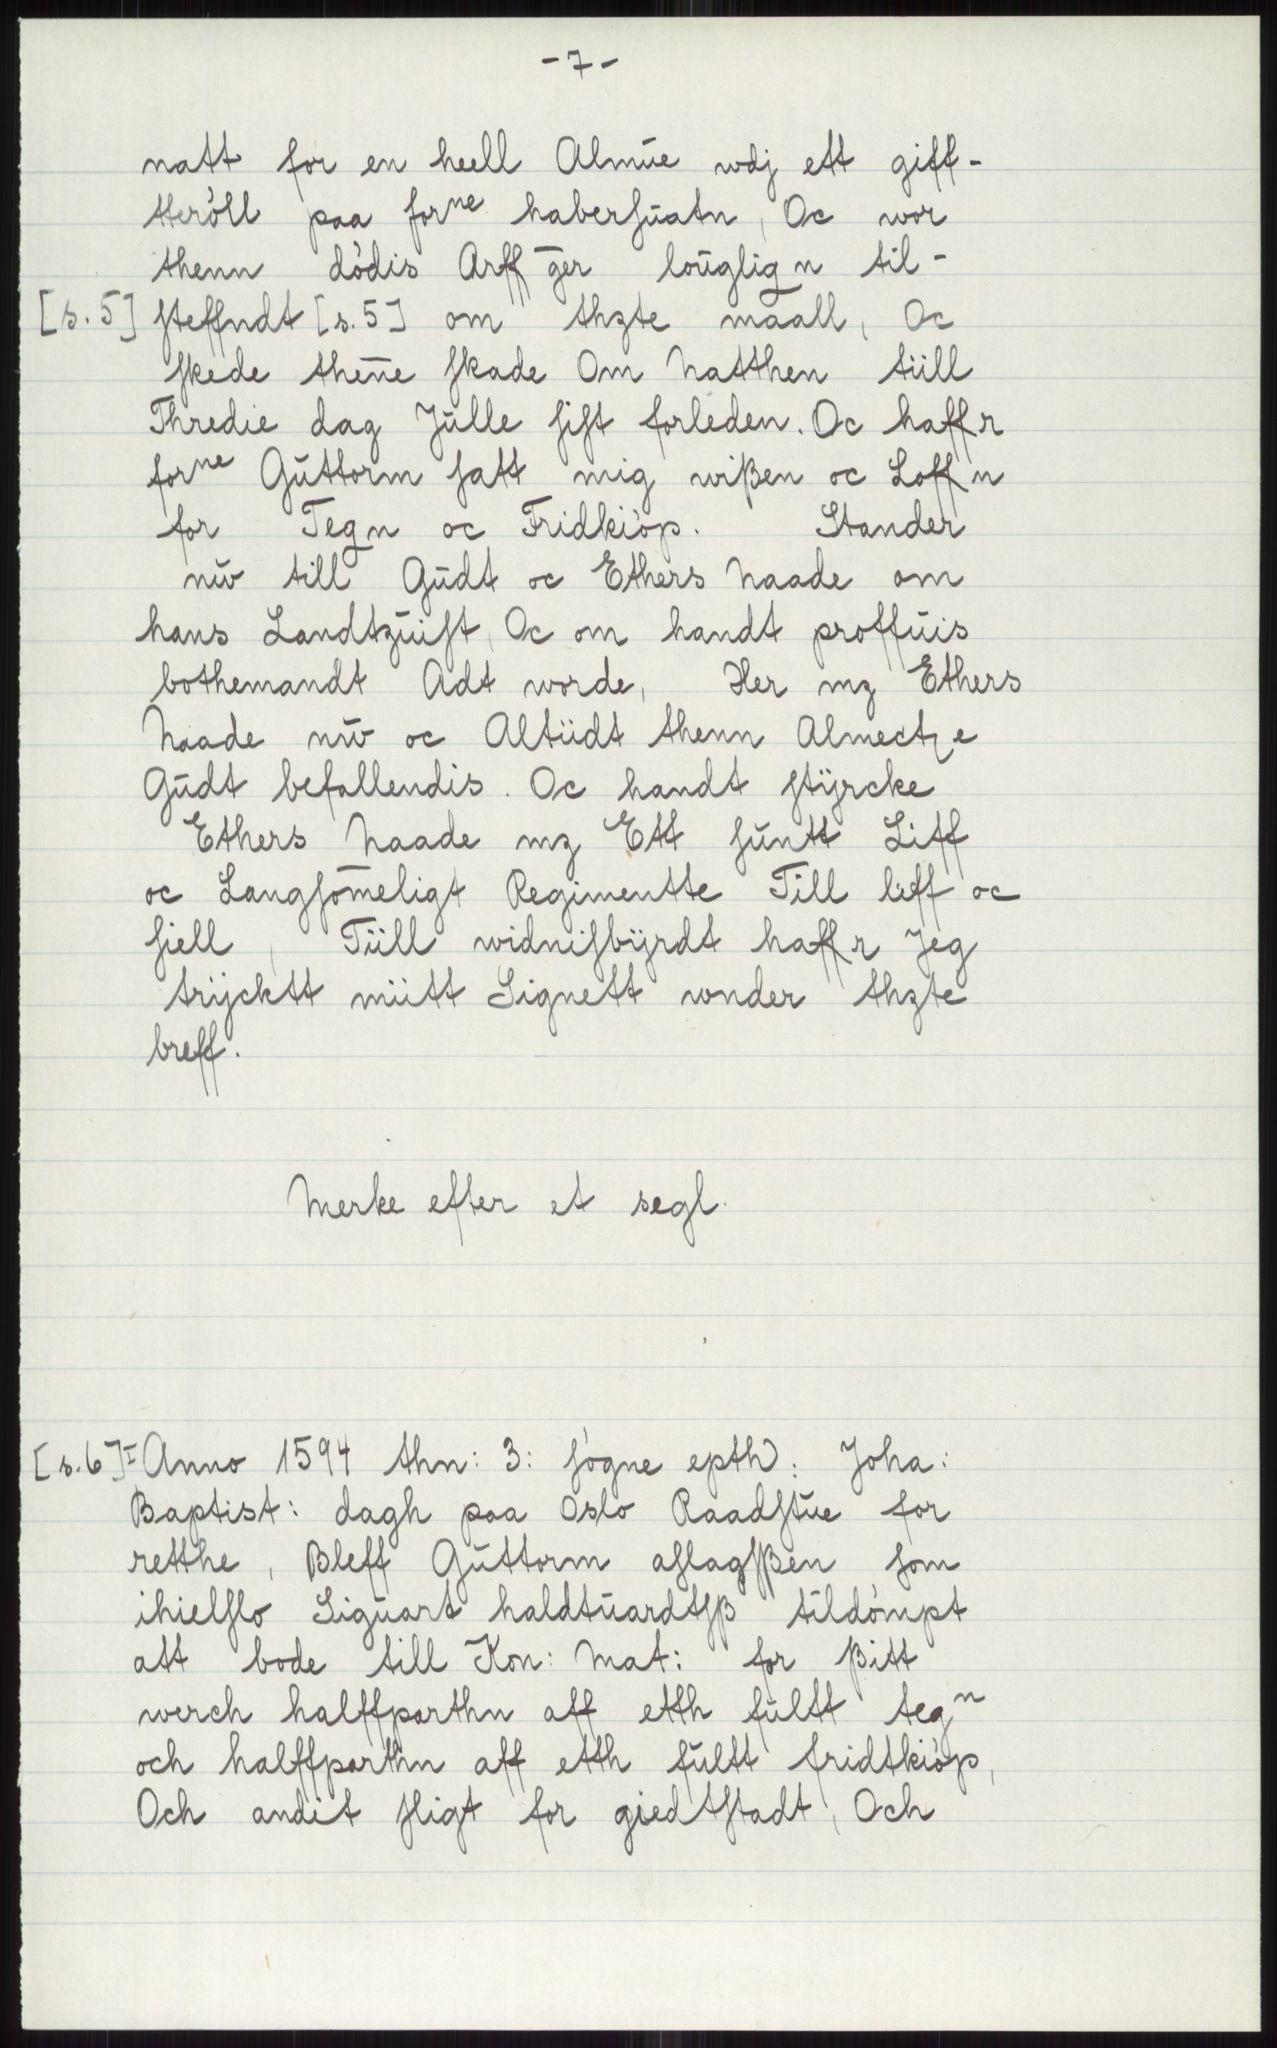 -7-
natt for en heell Almūe wdj ett giff-
tteröll paa forne haberſūatn, Oc wor
thenn dödis Arff g̅er loūglign til-
[s.5] ſteffndt [s.5] om thzte māall, Oc
ſkede then̄e ſkade Om Natthen tiill
Thredie dag Jūlle ſiſt forleden. Oc haffr
forne Gūttorm ſatt mig wißen oc Loffn
for Tegn oc Fridkiöp. Stander
nw till Gūdt oc Ethers Naade om
hans Landtzūiſt, Oc om handt proffūis
bothemandt Adt worde, Her mz Ethers
Naade nw oc Altiidt thenn Almectze
Gūdt befallendis. Oc handt ſtÿrcke
Ethers Naade mz Ett ſūntt Liff
oc Langſom̄eligt Regimentte Till liff oc
ſiell, Tiill widniſbÿrdt haffr Jeg
trÿcktt miitt Signett wnder thzte
breff.
Merke efter et segl.
[s.6]I Anno 1594 thn: 3: ſögne epth: Joha:
Baptist: dagh paa Oslo Raadſtūe for
retthe, Bleff Gūttorm aſlagſßen ſom
ihielſlo Sigūart haldtūardtſß tildömpt
att bode till Kon: Mat: for ßitt
werch halffparthn aff etth fūltt tegn
och halffparthn aff etth fūltt fridtkiöp,
Och andit ſligt for giedtſtadt, Och